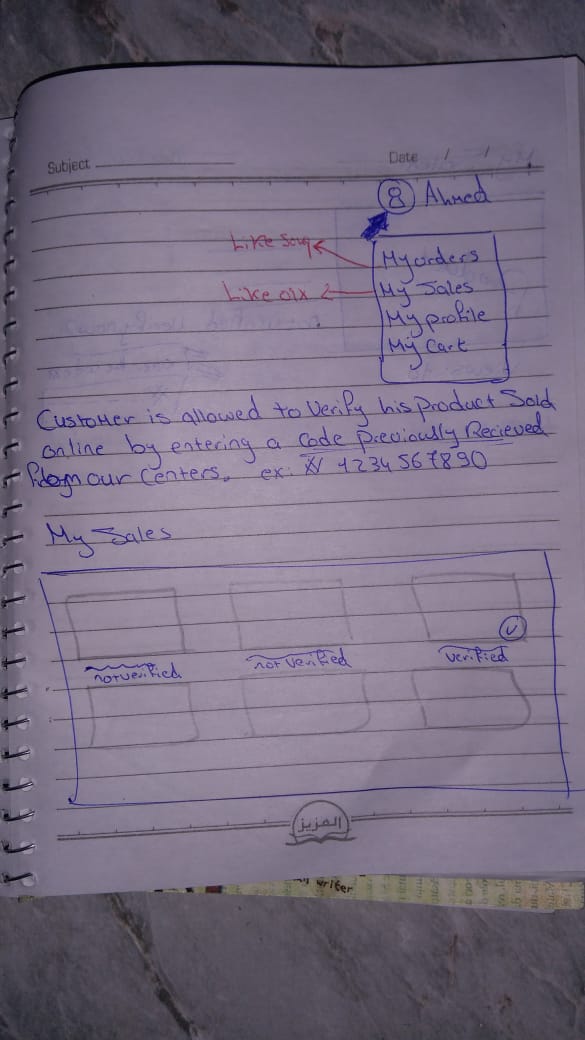 Subject
Date / /
Ahmed
Like Souq
My orders
Like olx
My Sales
My profile
My Cart
Customer is allowed to Verify his product Sold
online by entering a Code previously Recieved
from our Centers. ex: 1234567890
My Sales
not verified
not verified
verified
المزيز
writer